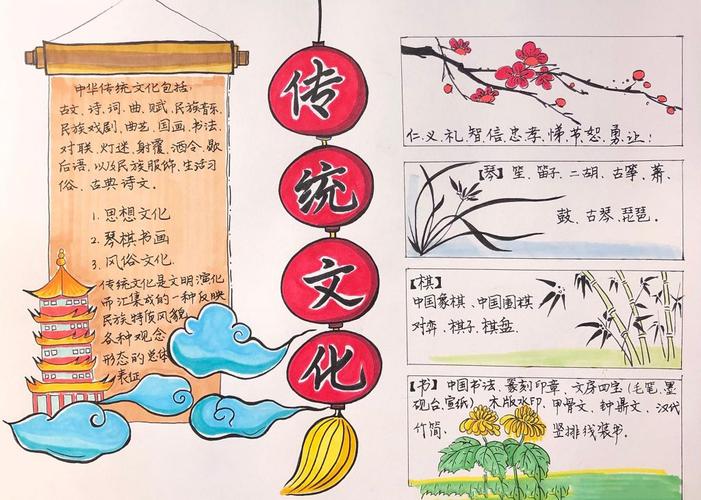 中华传统文化包括:
古文、诗、词、曲、赋、民族音乐、
民族戏剧、曲艺、国画、书法、
对联、灯迷、射覆、酒令、歇
后语、以及民族服饰、生活习
俗、古典诗文。
1. 思想文化
2. 琴棋书画
3. 风俗文化
传统文化是文明演化
而汇集成的一种反映
民族特质风貌
各种观念
形态的总体
表征
传
统
文
化
仁、义、礼、智、信、忠、孝、悌、节、恕、勇、让;
【琴】笙、笛子、二胡、古筝、萧、
鼓、古琴、琵琶。
【棋】
中国象棋、中国围棋
对弈、棋子、棋盘。
【书】中国书法、篆刻印章、文房四宝(毛笔、墨
砚台、宣纸)、木版水印、甲骨文、钟鼎文、汉代
竹简、竖排线装书。